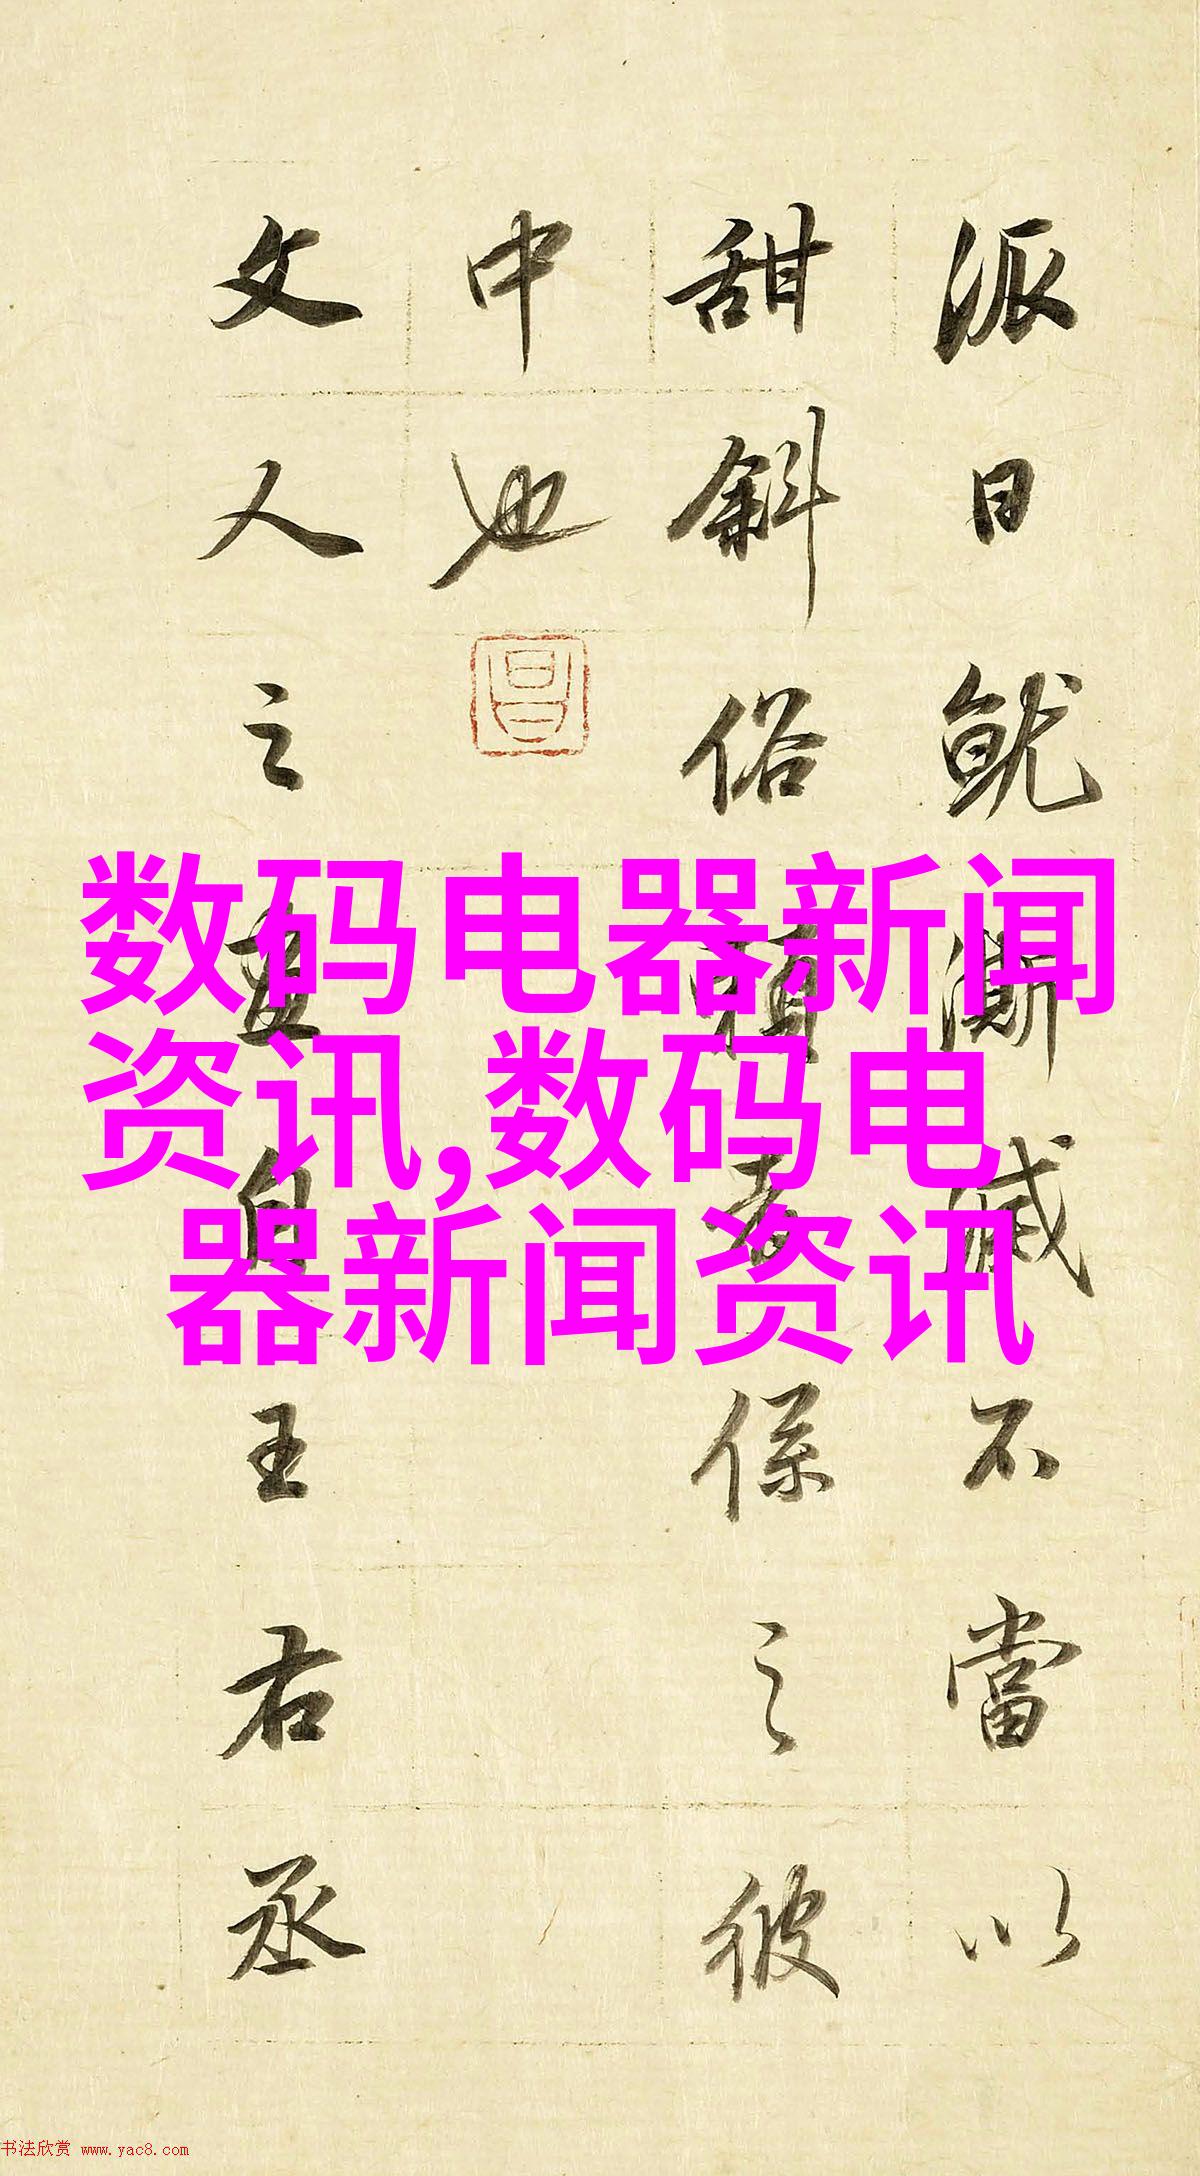 派日就澌滅不當以
甜斜俗賴者係之彼
中也
昌
文人之畫自王右丞
数码电器新闻
资讯,数码电
器新闻资讯
书法欣赏 www.yac8.com